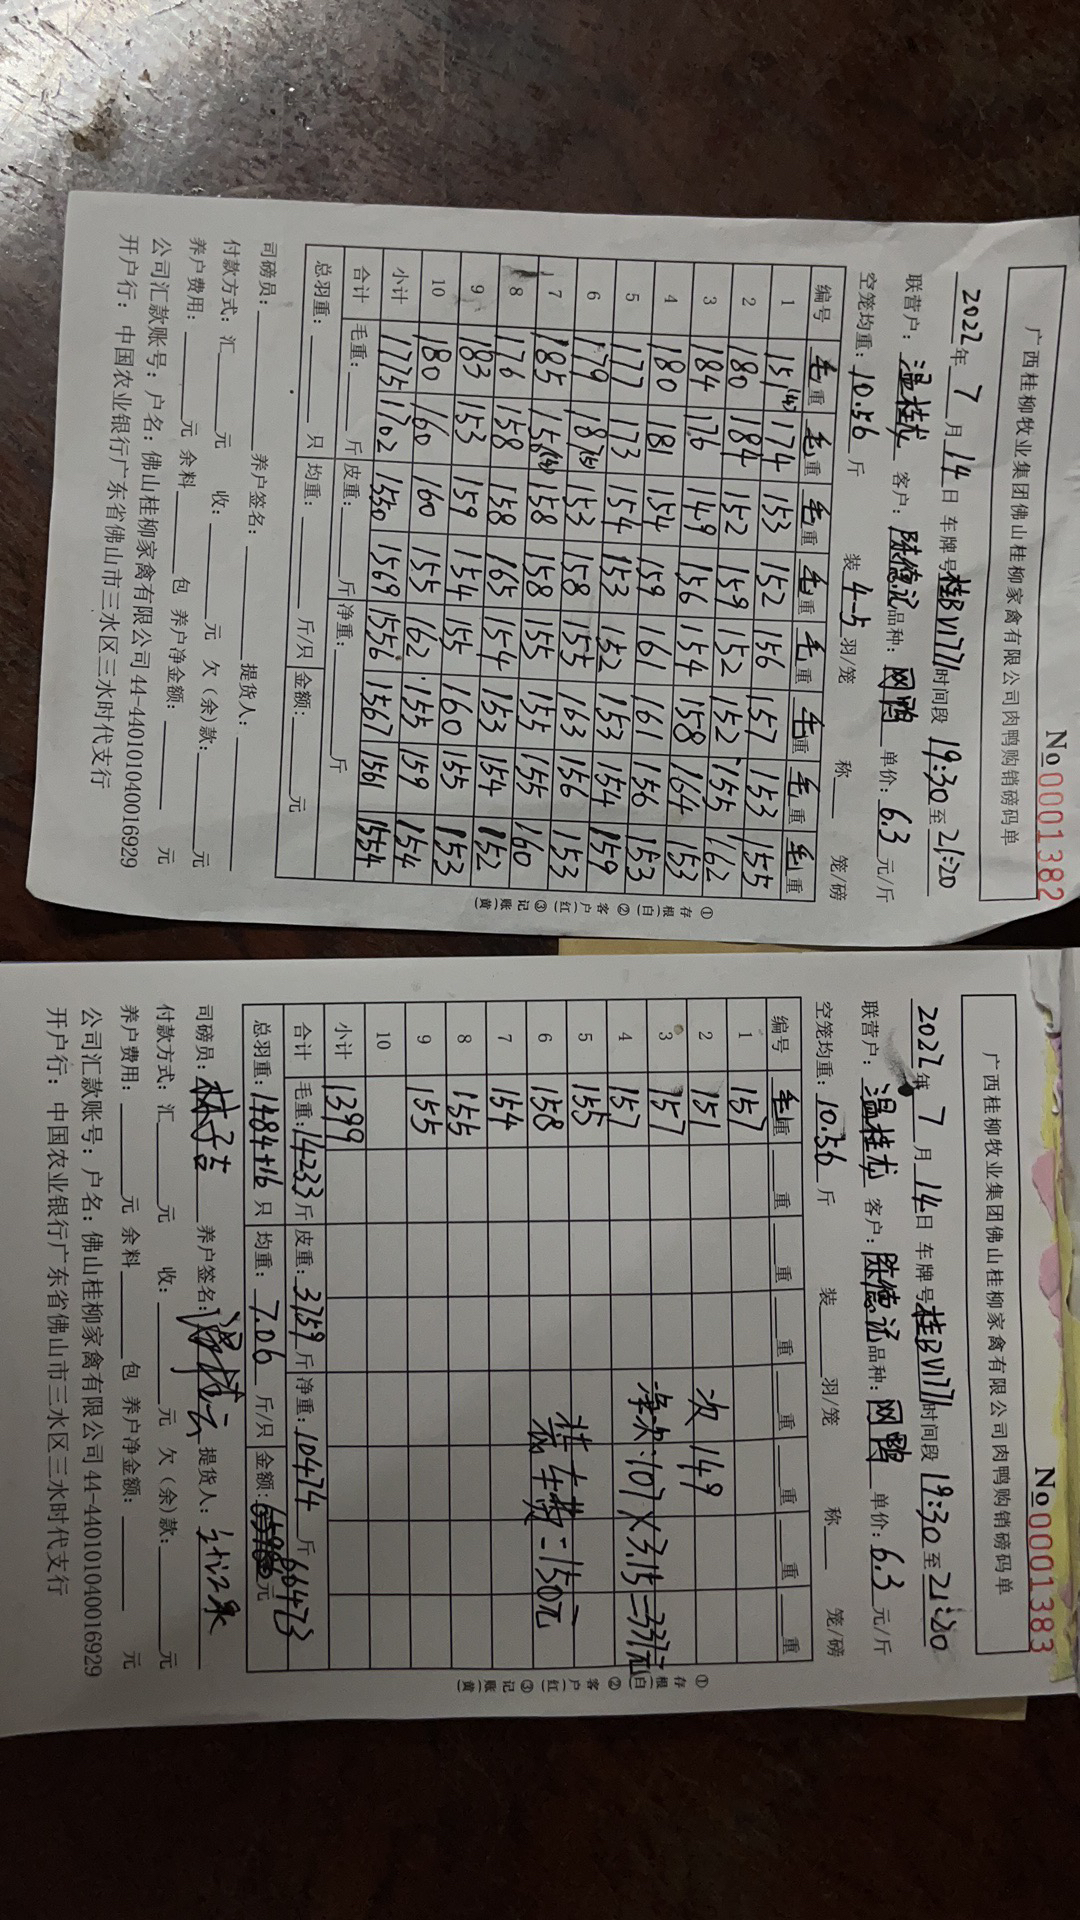 No 0001382
广西桂柳牧业集团佛山桂柳家禽有限公司肉鸭购销磅码单
2022年7月14日 车牌号桂BV1771时间段19:30至21:20
联营户：温桂龙 客户：陈德记 品种：网鸭 单价：6.3元/斤
空笼均重：10.56斤 装4-5羽/笼 称 笼/磅
编号 毛重 毛重 毛重 毛重 毛重 毛重 毛重 毛重
1 151(4) 174 153 152 156 157 153 155
2 180 184 152 159 152 152 155 162
3 184 176 149 156 154 158 164 153
4 180 181 154 159 161 161 156 153
5 177 173 154 153 152 153 154 159
6 179 187(5) 153 158 155 163 156 153
7 185 156(4) 158 158 155 155 155 160
8 176 158 158 165 154 153 154 152
9 183 153 159 154 155 160 155 153
10 180 160 160 155 162 155 159 154
小计 1775 1702 1550 1569 1556 1567 1561 1554
合计 毛重： 斤 皮重： 斤 净重： 斤
总羽重： 只 均重： 斤/只 金额： 元
司磅员： 养户签名： 提货人：
付款方式：汇 元 收： 元 欠（余）款： 元
养户费用： 元 余料 包 养户净金额： 元
公司汇款账号：户名：佛山桂柳家禽有限公司 44-440101040016929
开户行：中国农业银行广东省佛山市三水区三水时代支行
①存根（白）②客户（红）③记账（黄）
No 0001383
广西桂柳牧业集团佛山桂柳家禽有限公司肉鸭购销磅码单
2022年7月14日 车牌号桂BV1771时间段19:30至21:20
联营户：温桂龙 客户：陈德记 品种：网鸭 单价：6.3元/斤
空笼均重：10.56斤 装 羽/笼 称 笼/磅
编号 毛重 重 重 重 重 重 重 重
1 157
2 151 次149
3 157 净次：107×3.15=337元
4 157
5 155
6 158 车费=150元
7 154
8 155
9 155
10
小计 1399
合计 毛重：14233斤 皮重：3759斤 净重：10474斤
总羽重：1484+16只 均重：7.06斤/只 金额：66473元
司磅员： 养户签名： 提货人：
付款方式：汇 元 收： 元 欠（余）款： 元
养户费用： 元 余料 包 养户净金额： 元
公司汇款账号：户名：佛山桂柳家禽有限公司 44-440101040016929
开户行：中国农业银行广东省佛山市三水区三水时代支行
①存根（白）②客户（红）③记账（黄）